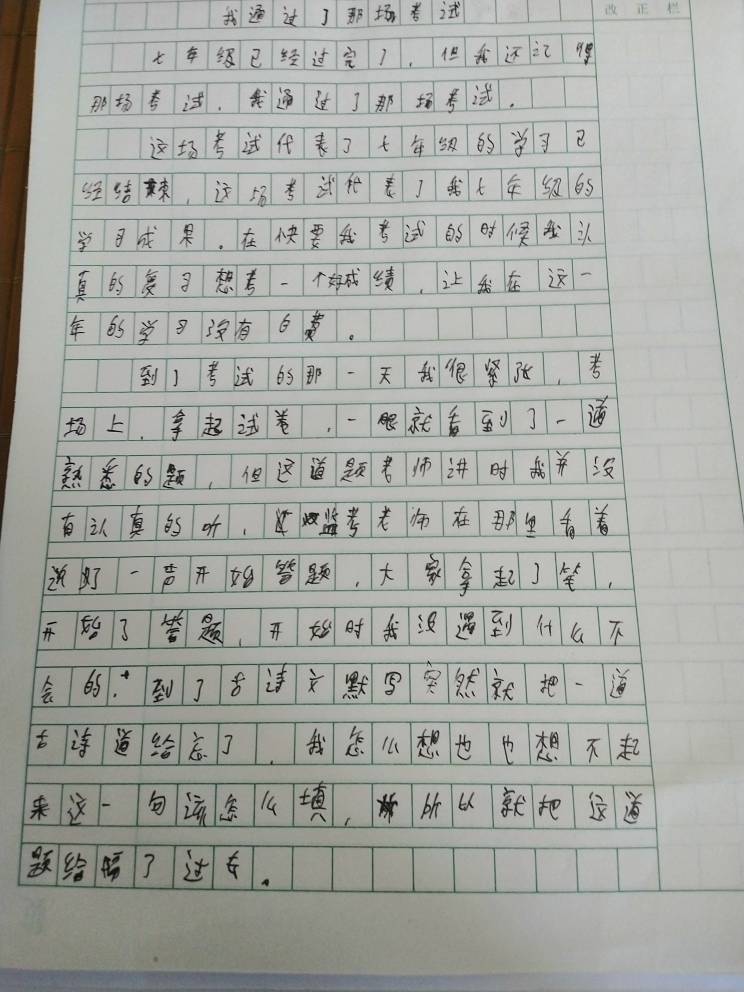 我通过了那场考试
改正栏
七年级已经过完了，但我还记得
那场考试，我通过了那场考试。
这场考试代表了七年级的学习已
经结束，这场考试代表了我七年级的
学习成果。在快要我考试的时候我认
真的复习想考一个好成绩，让我在这一
年的学习没有白费。
到了考试的那一天我很紧张，考
场上，拿起试卷，一眼就看到了一道
熟悉的题，但这道题老师讲时我并没
有认真的听，监考老师在那里看着
说好一声开始答题，大家拿起了笔，
开始了答题，开始时我没遇到什么不
会的。到了古诗文默写突然就把一道
古诗道给忘了，我怎么想也也想不起
来这一句该怎么填，所以就把这道
题给隔了过去。